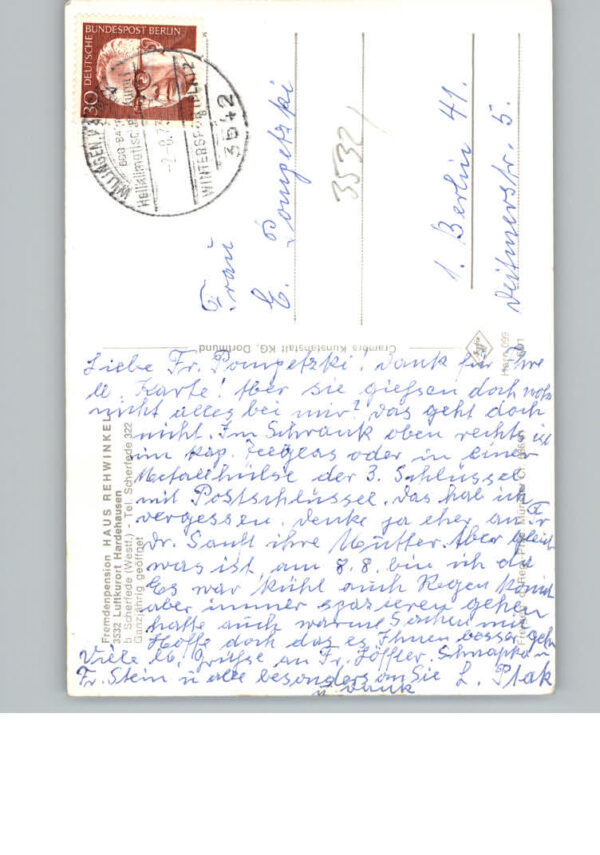 DEUTSCHE BUNDESPOST BERLIN
30
WILLINGEN
Heilklimatischer
WINTERSPORTPLATZ
3542
3532
Frau
E. Pompetzki
1. Berlin 41.
Deitmerstr. 5.
Cramers Kunstanstalt KG, Dortmund
Fremdenpension HAUS REHWINKEL
3532 Luftkurort Hardehausen
b. Scherfede (Westf.) - Tel. Scherfede 322
Ganzjährig geöffnet
Liebe Fr. Pompetzki! Dank für Ihre
lb. Karte! Aber sie gießen doch wohl
nicht alles bei mir? Das geht doch
nicht. Im Schrank oben rechts ist
im oder in einer
Metallhülse der 3. Schlüssel
mit Postschlüssel. Das hab ich
vergessen. Denke ja eher an Fr
Dr. Sanft ihre Mutter. Aber gleich
was ist am 8.8. bin ich da
Es war kühl auch Regen konnt
aber immer spazieren gehen
hatte auch warme Sachen mit
Hoffe doch das es Ihnen besser geht
Viele lb. Grüße an Fr. Löffler, Schnapka u
Fr. Stein u alle besonders an Sie L. Ptak
u Dank